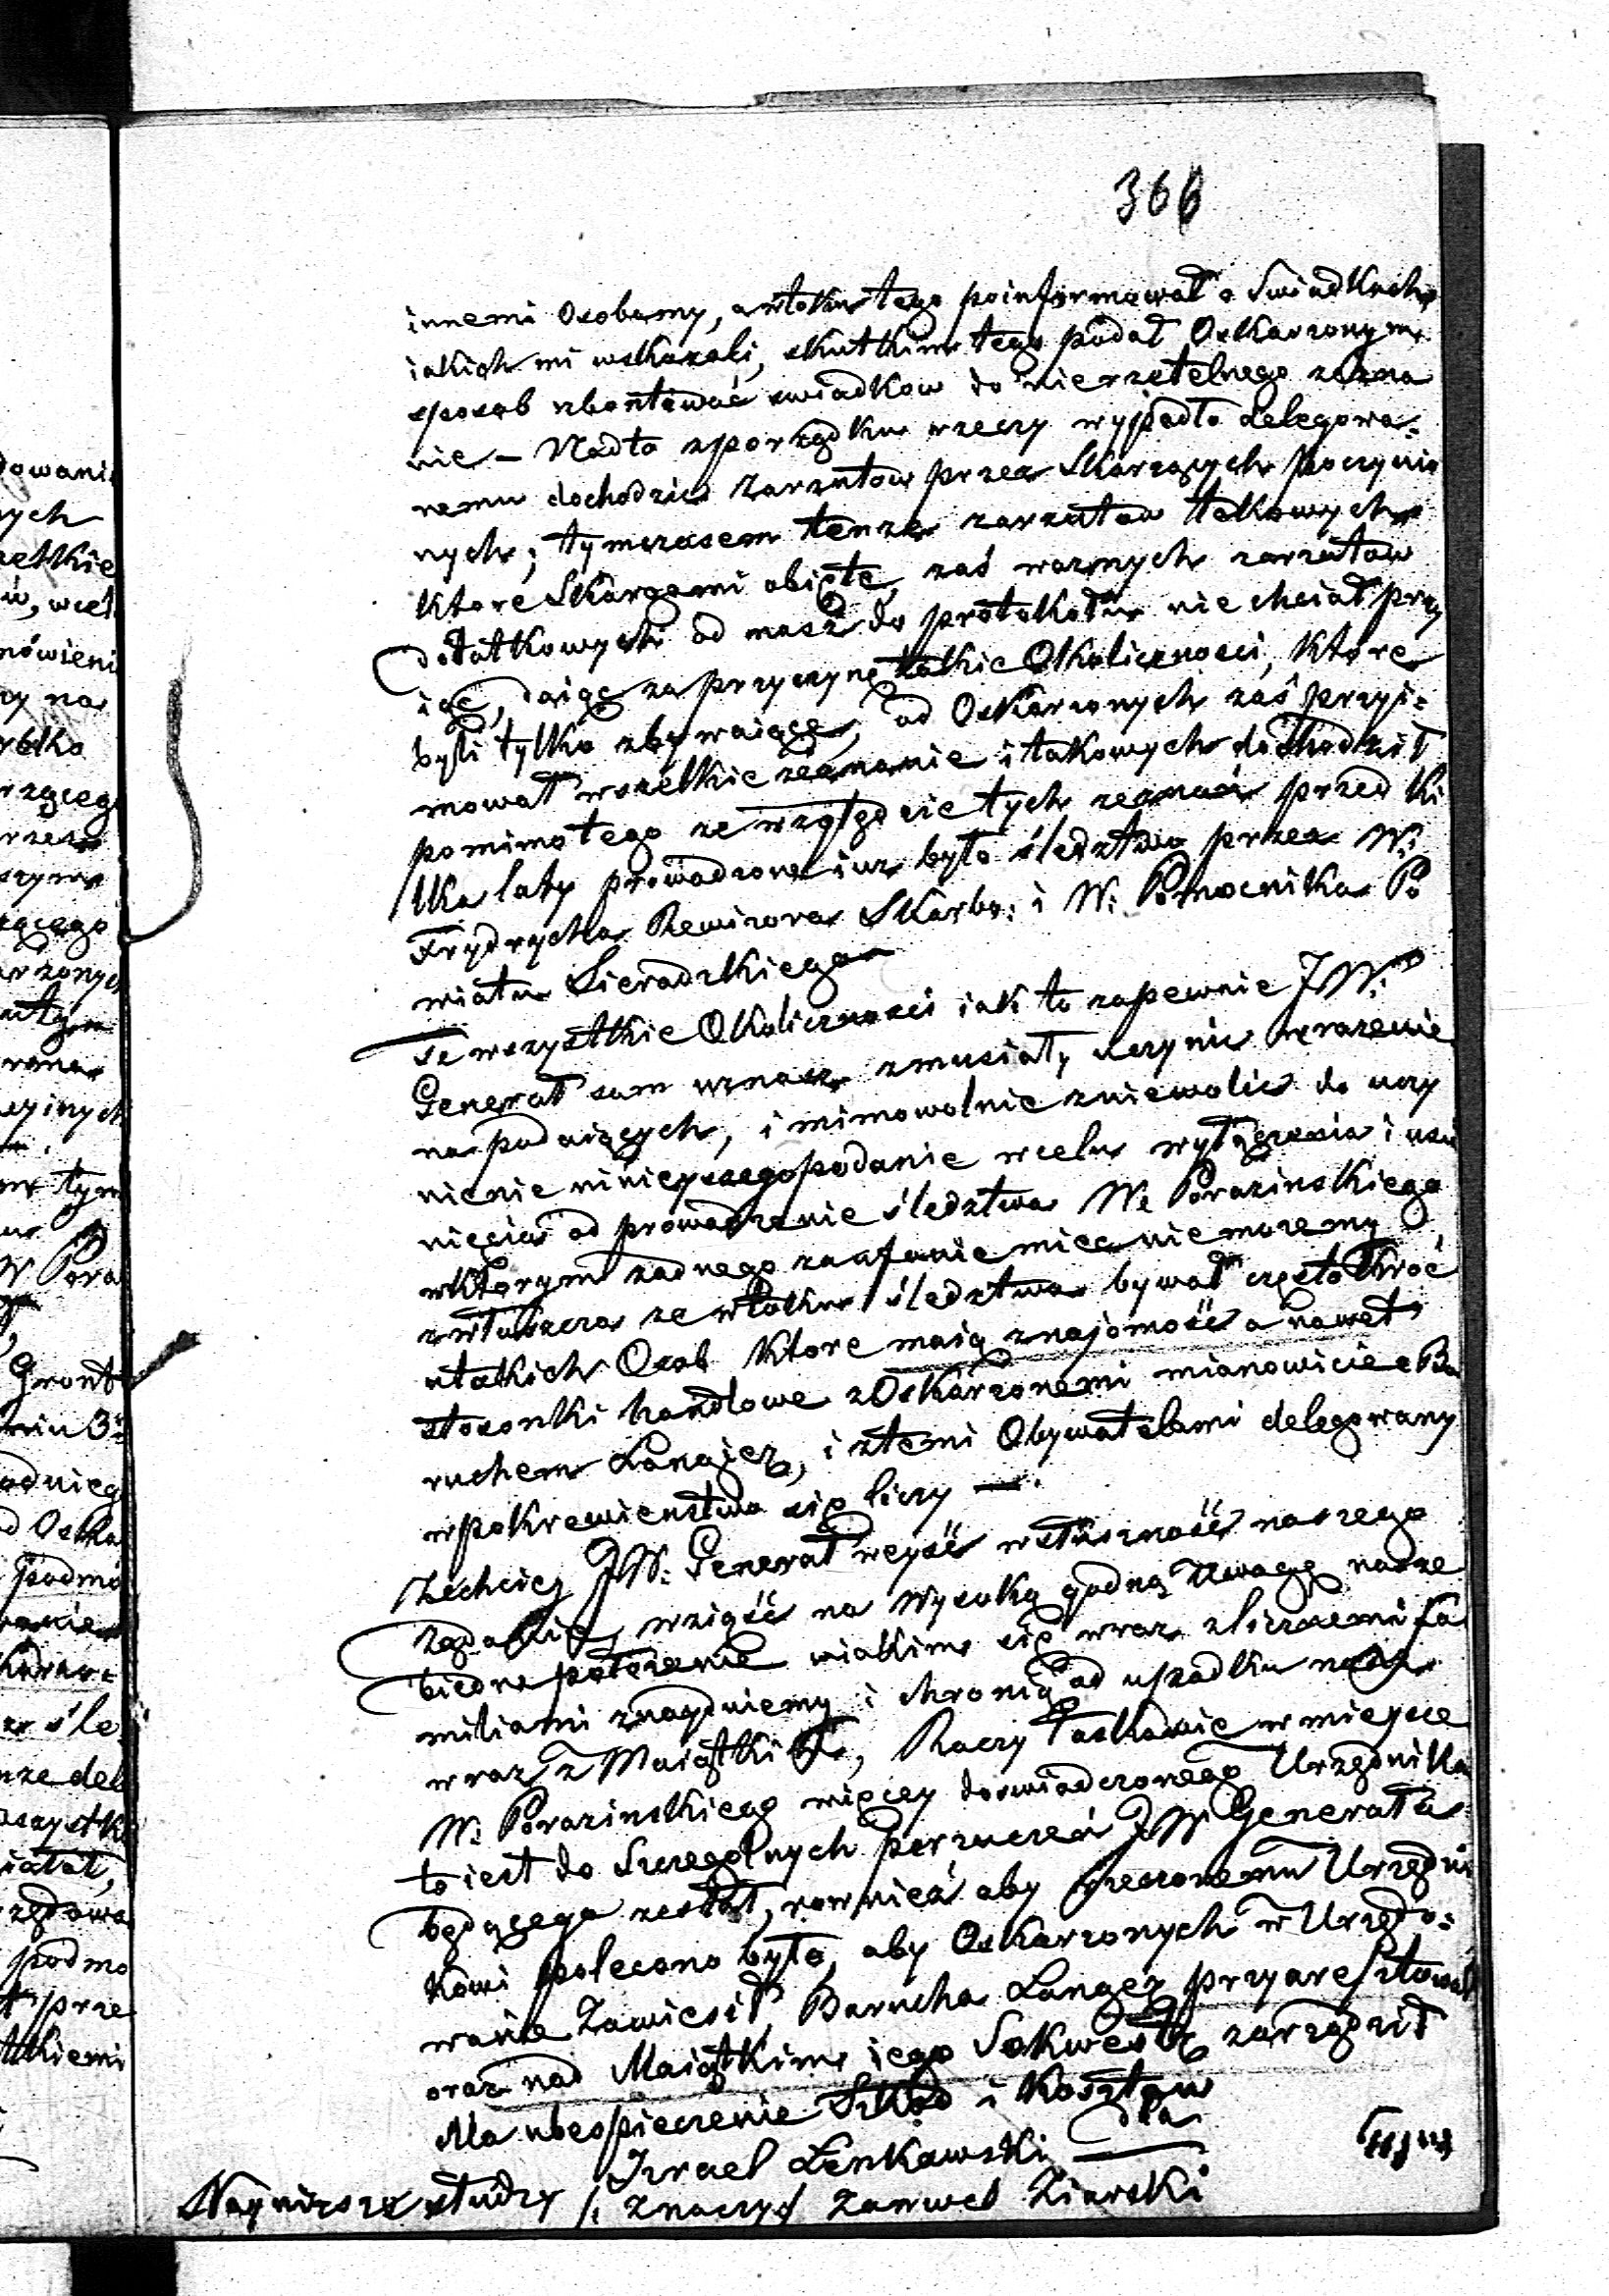 366
innemi Osobamy, a wtoku tego poinformował o Swiadkach
iakich mi wskazali, skutkiem tego podał Oskarzonym
sposob zbontować swiadkow do nierzetelnego zezna
nie — Nadto zporządku rzeczy wypadło delegowa=
nemu dochodzic Zarzutow przez Skarzących poczynio
nych; tymczasem tenze zarzutow takowych
ktore Skargami obięte, zaś waznych zarzutow
dodatkowych od nasz do protokołu nie chciał przy
iąć, daiąc za przyczynę takie Okoliczności, które
byli tylko zbywaiące, od Oskarzonych zaś przyi=
mował wszelkie zeznanie i takowych dochodził
pomimo tego ze względnie tych zeznań przed ki
lka laty prowadzone iuz było śledztwo przez W:
Frydrycha Rewizora Skarbo: i W: Pomocnika Po
wiatu Sieradzkiego
Te wszystkie Okoliczności iak to zapewnie JW:
Generał sam uznasz zmusiały uczynic wrazenie
na podaiących, i mimowolnie zniewolic do uczy
nienie ninieyszego podanie wcelu wyłączenia i usu
nięcia od prowadzenie śledztwa W: Porazinskiego
wktorym zadnego zaufanie miec nie mozemy
zwłaszcza ze wtoku śledztwa bywał częstokroć
utakich Osob ktore maią znajomość a nawet
stosonki handlowe z Oskarzonemi mianowicie z Ba
ruchem Langier, i ztemi Obywatelami delegowany
wpokrewienstwo się liczy —.
Zechciey JW: Generał weyść w słuszność naszego
żądanie, wziąść na Wysoką godną Uwagę nasze
biedne położenie wiakim się wraz zlicznemi fa
miliami znayduiemy i chronią od upadku nasz
wraz z Maiątki, Raczy łaskawie wmieysce
W: Porazinskiego więcey doswiadczonego Urzędnika
to iest do Szczegolnych porzuczeń JW: Generała
będącego zesłał, rowniez aby rzeczonemu Urzędni
kowi polecono było, aby Oskarzonych w Urzędo=
wanie Zawiesił, Barucha Langer przyaresztował
oraz nad Maiątkim iego Sekwestr zarządził
Na ubespieczenie Szkód i Kosztow
dla
Izrael Lenkawski
Nayniższe słudzy /: znaczy / Zanwel Ziarski